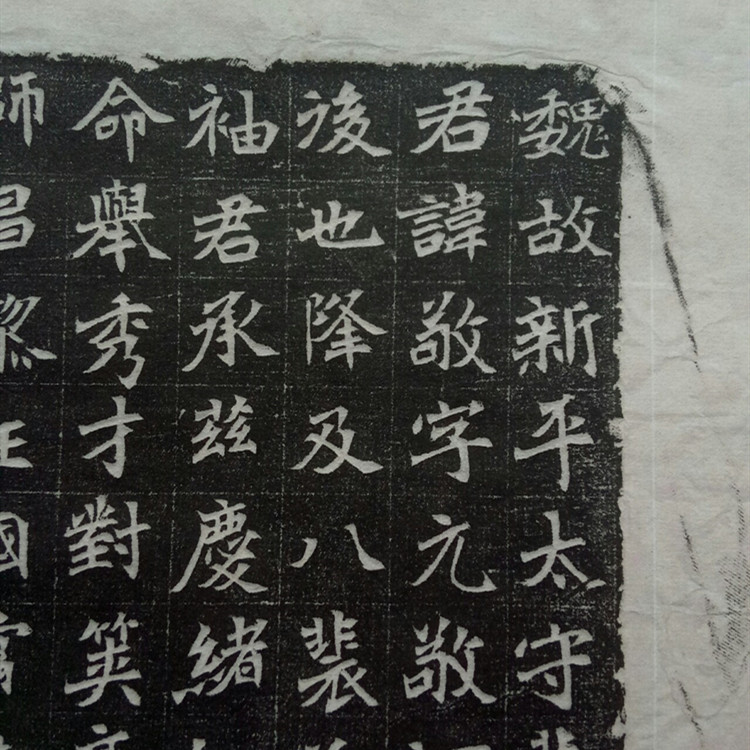 魏故新平太守
君諱敬字元敬
後也降及八裴
袖君承茲慶緒
命舉秀才對筞
師昌黎王國